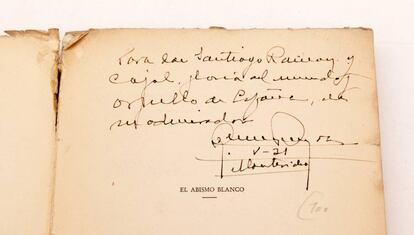 Para don Santiago Ramón y
Cajal, gloria del mundo y
orgullo de España, de
su admirador
V-21
Montevideo
EL ABISMO BLANCO